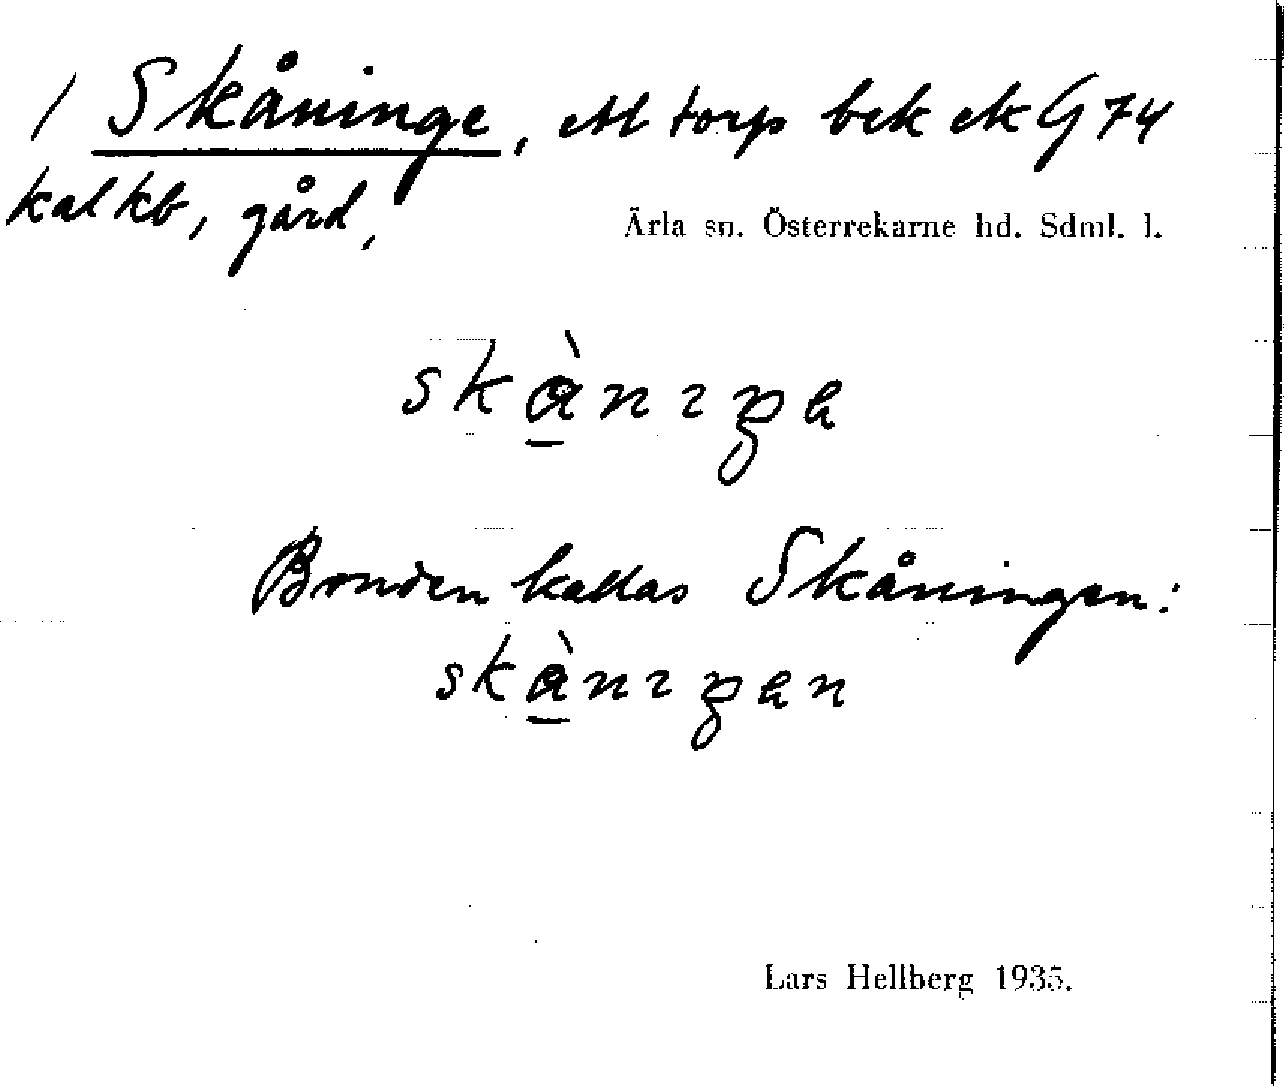 / Skåninge, ett torp bek ek G 74
kal kb, gård,
Ärla sn. Österrekarne hd. Sdml. l.
skàniŋa
Bonden kallas Skåningen:
skàniŋan
Lars Hellberg 1935.